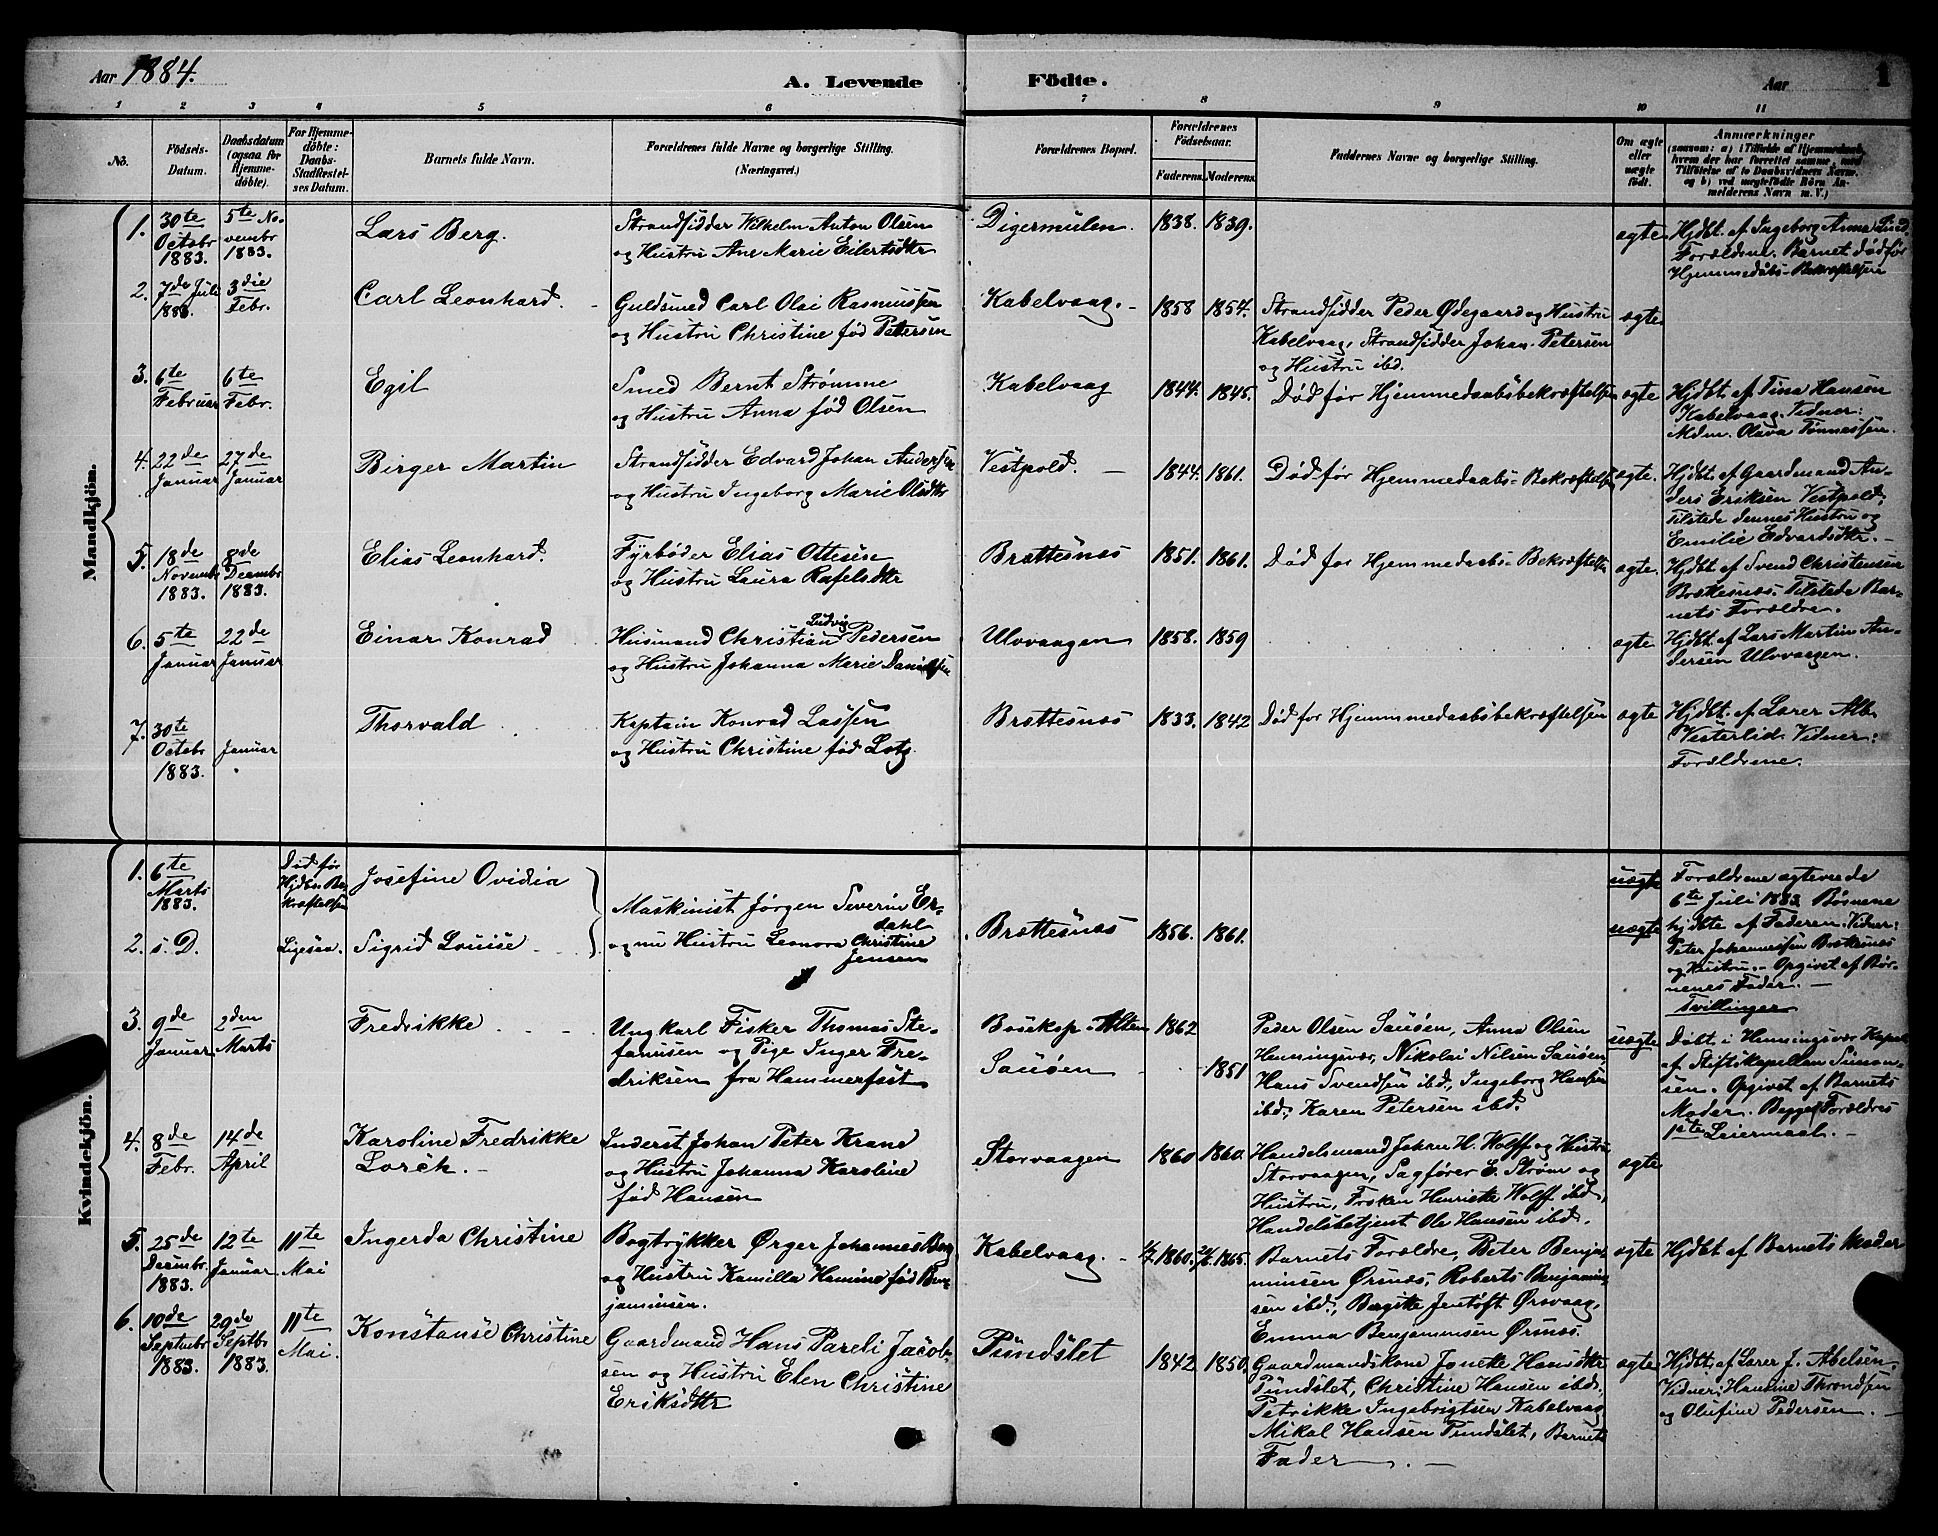 Aar 1884.
A. Levende Födte.
Aar
1
1 2 3 4 5 6 7 8 9 10 11
No.
Födsels-
Datum.
Daabsdatum
(ogsaa for
Hjemme-
döbte).
For Hjemme-
döbte:
Daabs-
Stadfæstel-
ses Datum.
Barnets fulde Navn.
Forældrenes fulde Navne og borgerlige Stilling.
(Næringsvei.)
Forældrenes Bopæl.
Forældrenes
Födselsaar.
Faderens. Moderens.
Faddernes Navne og borgerlige Stilling.
Om ægte
eller
uægte
födt.
Anmærkninger
(saasom: a) i Tilfælde af Hjemmedaab,
hvem der har forrettet samme, med
Tilföielse af to Daabsvidners Navne,
og b) ved uægtefödte Börn An-
melderens Navn m. V.)
Mandkjön.
1.
30te
Octobr
1883.
5te No-
vembr
1883.
Lars Berg.
Strandsidder Wilhelm Anton Olsen
og Hustru Ane Marie Eilertsdtr
Digermulen.
1838. 1839.
ægte
Hjdbt. af Ingeborg Anna Lund.
Forældrene. Barnet død før
Hjemmedaabs-Bekræftelsen
2.
7de Juli
1883.
3die
Febr.
Carl Leonhard.
Guldsmed Carl Olai Rasmussen
og Hustru Christine fød Petersen
Kabelvaag.
1858 1854.
Strandsidder Peder Ødegaard og Hustru
Kabelvaag, Strandsidder Johan Petersen
og Hustru ibd.
ægte
3.
6te
Februar
6te
Febr.
Egil
Smed Bernt Strømme
og Hustru Anna fød Olsen
Kabelvaag
1844. 1845.
Død før Hjemmedaabsbekræftelsen
ægte
Hjdbt. af Tina Hansen
Kabelvaag. Vidner:
Mdm. Olava Tønnessen.
4.
22de
Januar
27de
Januar
Birger Martin
Strandsidder Edvard Johan Andersen
og Hustru Ingeborg Marie Olsdtr
Vestpold.
1844. 1861.
Død før Hjemmedaabs-Bekræftelsen
ægte.
Hjdbt. af Gaardmand An-
ders Eriksen Vestpold,
tilstede dennes Hustru og
Emilie Edvardsdtr.
5.
18de
Novembr
1883.
8de
Decmbr
1883.
Elias Leonhard.
Fyrbøder Elias Ottesen
og Hustru Laura Rafelsdtr
Brættesnæs
1851. 1861.
Død før Hjemmedaabs-Bekræftelsen
ægte.
Hjdbt. af Svend Christensen
Brættesnæs. Tilstede Bar-
nets Forældre.
6.
5te
Januar
22de
Januar
Einar Konrad
Ludvig
Husmand Christian Pedersen
og Hustru Johanna Marie Danielsen
Ulvvaagen
1858. 1859
ægte
Hjdbt. af Lars Martin An-
dersen Ulvvaagen.
7.
30te
Octobr
1883.
Januar
Thorvald
Kaptein Konrad Lassen
og Hustru Christine fød Lotz.
Brættesnæs
1833. 1842
Død før Hjemmedaabsbekræftelsen
ægte
Hjdbt. af Lærer Alb.
Vesterlid. Vidner:
Forældrene.
Kvindekjön.
1.
6te
Marts
1883.
Død før
Hjdbs. Be-
kræftelsen
Josefine Ovidia
2.
s. D.
Ligesaa.
Sigrid Louise
Maskinist Jørgen Severin Er-
dahl
og nu Hustru Leonora Christine
Jensen
Brættesnæs
1856. 1861.
uægte
uægte
Forældrene ægteviede
6te Juli 1883. Børnene
hjdbte af Faderen. Vidner:
Peter Johannessen Brættesnæs
og Hustru. Opgivet af Bør-
nenes Fader.
Tvillinger
3.
9de
Januar
2den
Marts
Fredrikke
Ungkarl Fisker Thomas Ste-
fanusen og Pige Inger Fre-
driksen fra Hammerfest
Bosekop-Alten
Sauøen
1862
1851
Peder Olsen Sauøen, Anna Olsen
Henningsvær, Nikolai Nilsen Sauøen
Hans Svendsen ibd., Ingeborg Hansen
ibd., Karen Petersen ibd.
uægte
Døbt i Henningsvær Kapel
af Stiftskapellan Simon-
sen. Opgivet af Barnets
Moder. Begge Forældres
1ste Leiermaal.
4.
8de
Febr.
14de
April
Karoline Fredrikke
Lorck.
Inderst Johan Peter Krane
og Hustru Johanna Karoline
fød Hansen
Storvaagen
1860 1860.
Handelsmand Johan H. Wolff og Hustru
Storvaagen, Sagfører E. Strøm og
Hustru, Frøken Henriette Wolff ibd.,
Handelsbetjent Ole Hansen ibd.
ægte
5.
25de
Decmbr.
1883.
12te
Januar
11te
Mai
Ingerda Christine
Bogtrykker Ørger Johannes Berg
og Hustru Kamilla Hamine fød Ben-
jaminsen.
Kabelvaag.
1860. 1865.
Barnets Forældre, Peter Benja-
minsen Ørsnæs, Roberts Benjamin-
sen ibd., Bergitte Jentoft Ørsvaag,
Emma Benjaminsen Ørsnæs.
ægte
Hjdbt af Barnets Moder
6.
10de
Septmbr
1883.
29de
Septbr
1883.
11te
Mai.
Konstanse Christine
Gaardmand Hans Pareli Jacob-
sen og Hustru Elen Christine
Eriksdtr
Pundslet
1842 1850.
Gaardmandskone Jonette Hansdtr
Pundslet, Christine Hansen ibd.
Petrikke Ingebrigtsen Kabelvaag
Mikal Hansen Pundslet, Barnets
Fader.
ægte
Hjdbt. af Lærer J. Abelsen.
Vidner: Hansine Throndsen
og Olufine Pedersen.